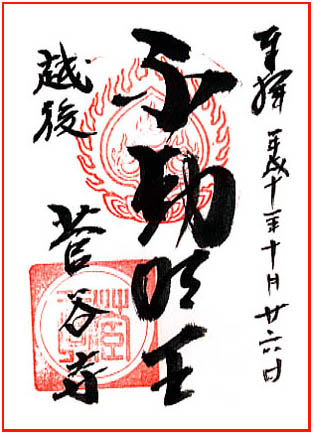 奉拝 平成十一年十月廿六日
不動明王
越後
菅谷寺